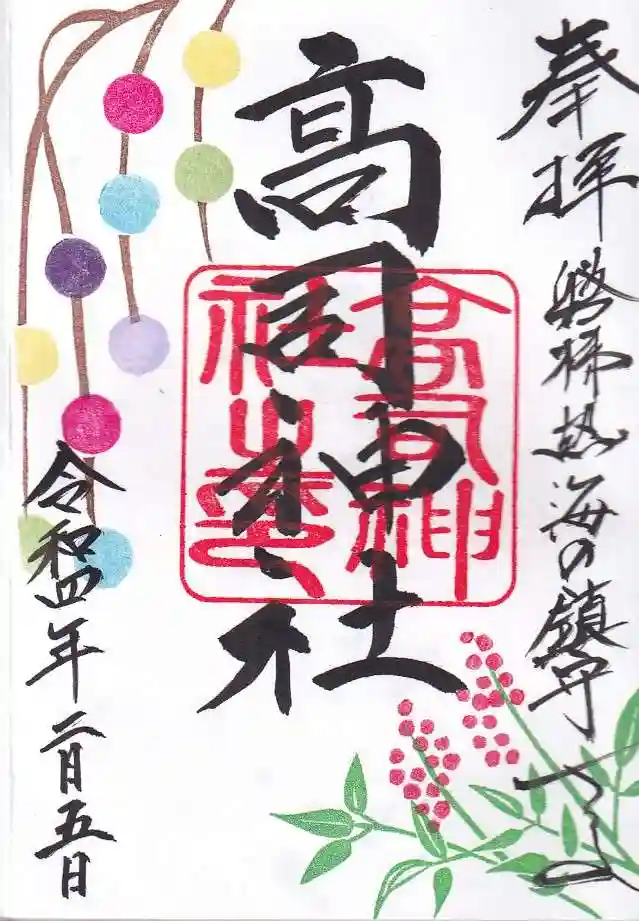 奉拝 磐梯熱海の鎮守
高司神社
高司神社之璽
令和四年二月五日